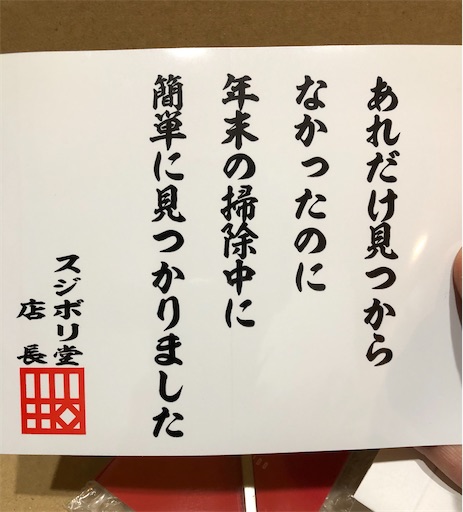 あれだけ見つから
なかったのに
年末の掃除中に
簡単に見つかりました
スジボリ堂
店長